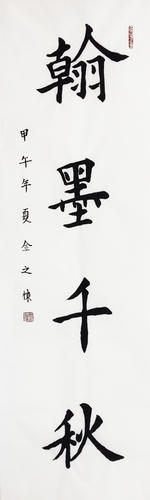 翰墨千秋
甲午年夏金之